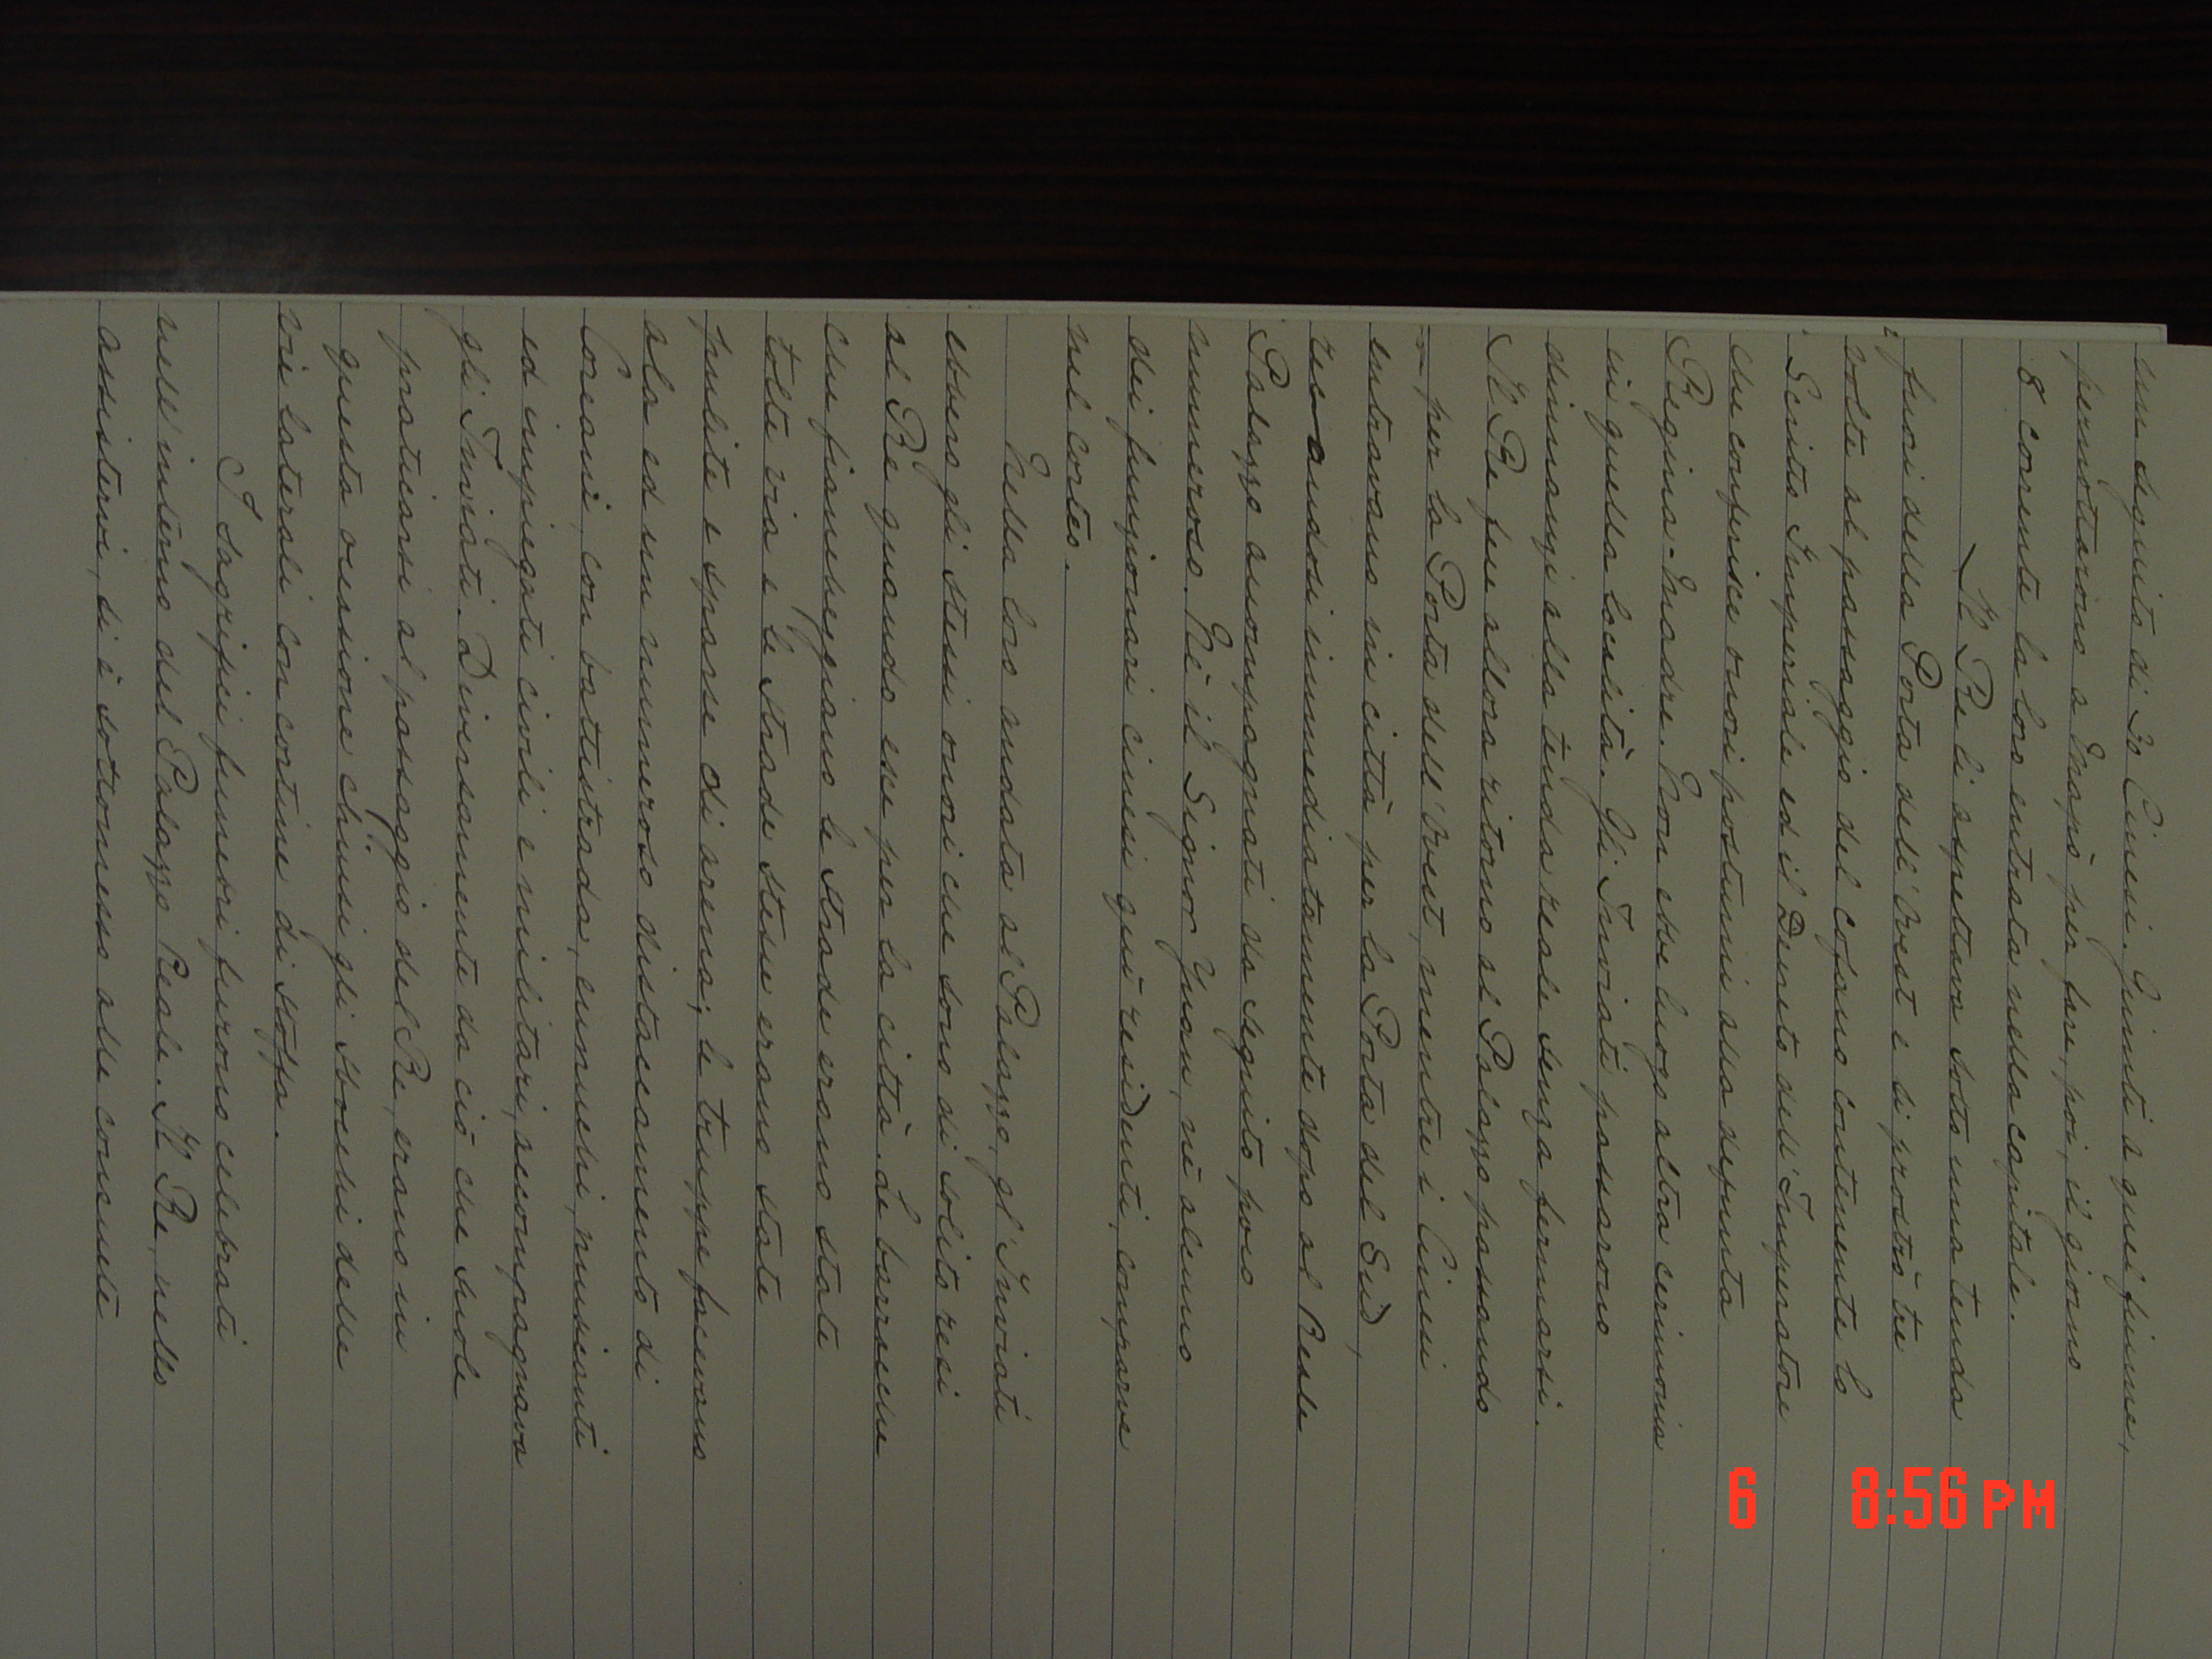 un seguito di 30 Cinesi. Giunti a quel fiume,
pernottarono a Mapò per fare, poi, il giorno
8 corrente la loro entrata nella capitale.
Il Re li aspettava sotto una tenda
fuori della Porta dell'Ovest e si prostrò tre
volte al passaggio del cofano contenente lo
Scritto Imperiale ed il Decreto dell'Imperatore
che conferisce onori postumi alla defunta
Regina-Madre. Non ebbe luogo altra cerimonia
in quella località. Gli Inviati passarono
dinnanzi alla tenda reale senza fermarsi.
Il Re fece allora ritorno al Palazzo passando
per la Porta dell'Ovest, mentre i Cinesi
entravano in città per la Porta del Sud,
recandosi immediatamente dopo al Reale
Palazzo accompagnati da seguito poco
numeroso. Nè il Signor Yuan, nè alcuno
dei funzionari cinesi quì residenti, comparve
nel corteo.
Nella loro andata al Palazzo, gl'Inviati
ebbero gli stessi onori che sono di solito resi
al Re quando esce per la città. Le baracche
che fiancheggiano le strade erano state
tolte via e le strade stesse erano state
pulite e sparse di arena; le truppe facevano
ala ed un numeroso distaccamento di
Coreani, con battistrada, eunuchi, musicanti
ed impiegati civili e militari, accompagnava
gli Inviati. Diversamente da ciò che suole
praticarsi al passaggio del Re, erano in
questa occasione chiusi gli sbocchi delle
vie laterali con cortine di stoffa.
I sagrifizi funebri furono celebrati
nell'interno del Palazzo Reale. Il Re, nello
assistervi, si è sottomesso alle consuete
6 8:56 PM